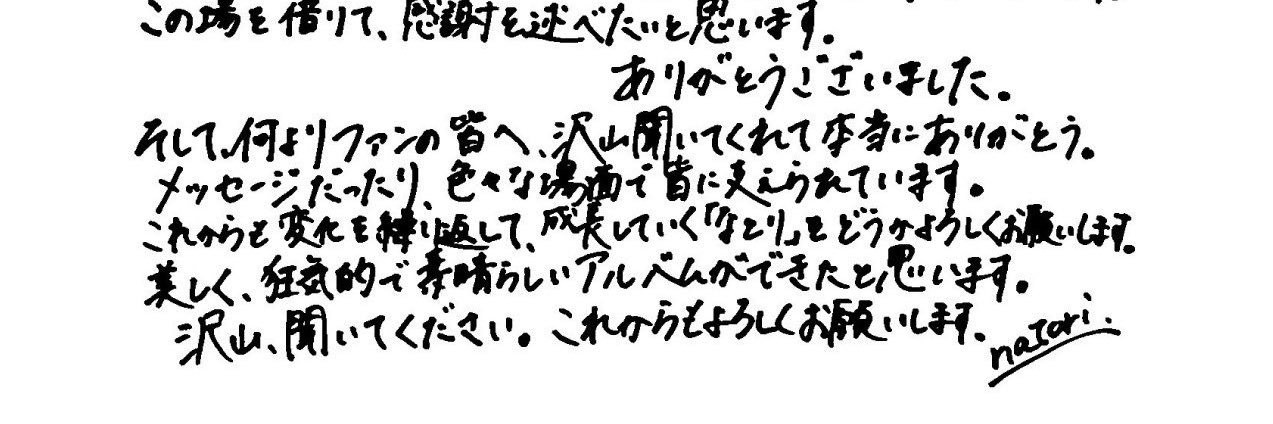 この場を借りて、感謝を述べたいと思います。
ありがとうございました。
そして、何よりファンの皆へ、沢山聞いてくれて本当にありがとう。
メッセージだったり、色々な場面で皆に支えられています。
これからも変化を繰り返して、成長していく「なとり」をどうかよろしくお願いします。
美しく、狂気的で素晴らしいアルバムができたと思います。
沢山、聞いてください。これからもよろしくお願いします。
natori.